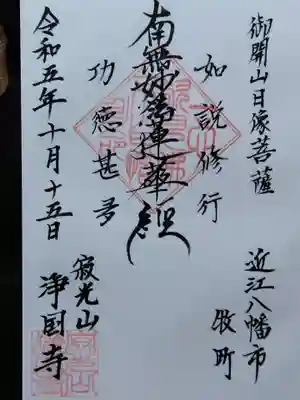 御開山日像菩薩
近江八幡市
牧町
如説修行
南無妙法蓮華経
功徳甚多
寂光山
浄国寺
令和五年十月十五日